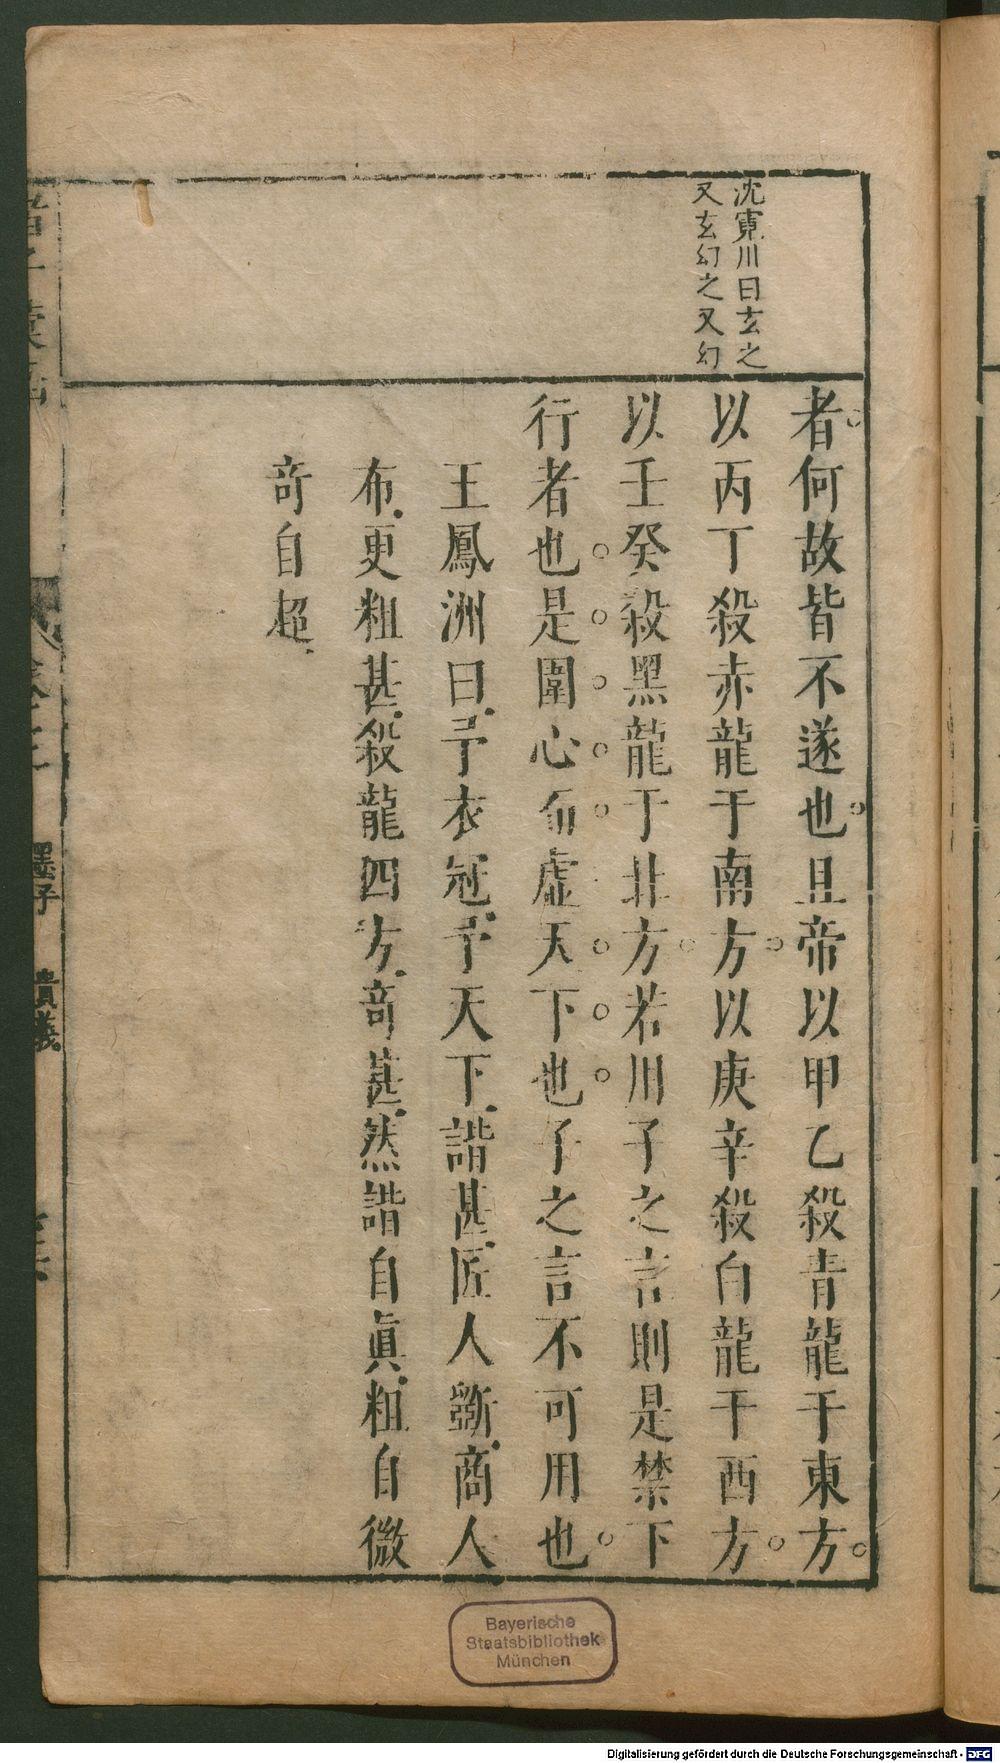 沈𡩋川曰玄之
又玄幻之又幻
者何故皆不遂也且帝以甲乙殺青龍于東方
以丙丁殺赤龍于南方以庚辛殺白龍于西方
以壬癸殺黑龍于北方若用子之言則是禁下
行者也是圍心而虛天下也子之言不可用也
王鳳洲曰予衣冠予天下諧甚匠人斵商人
布更粗甚殺龍四方竒甚然諧自眞粗自微
竒自超
墨子 貴義
Bayerische
Staatsbibliothek
München
Digitalisierung gefördert durch die Deutsche Forschungsgemeinschaft - DFG